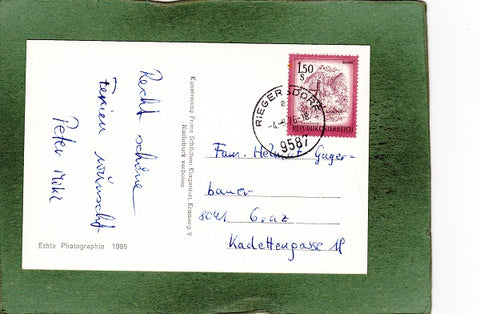 Recht schöne
Ferien wünscht
Peter
Kunstverlag Franz Schilcher, Klagenfurt, 9
Nachdruck verboten
Echte Photographie 1965
1.50
S
REPUBLIK ÖSTERREICH
RIEGERSDORF
9587
Fam. Helmut Guger=
bauer
8041 Graz
Kadettengasse